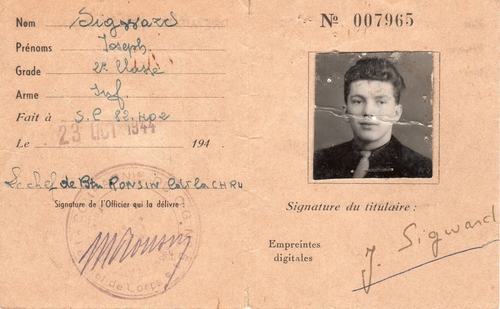 Nom Sigward
Prénoms Joseph
Grade 2e Classe
Arme Inf.
Fait à S.P. 82.402
Le 23 OCT 1944 194
Le chef de Btn RONSIN
Signature de l'Officier qui la délivre :
Nº 007965
Signature du titulaire :
J. Sigward
Empreintes
digitales